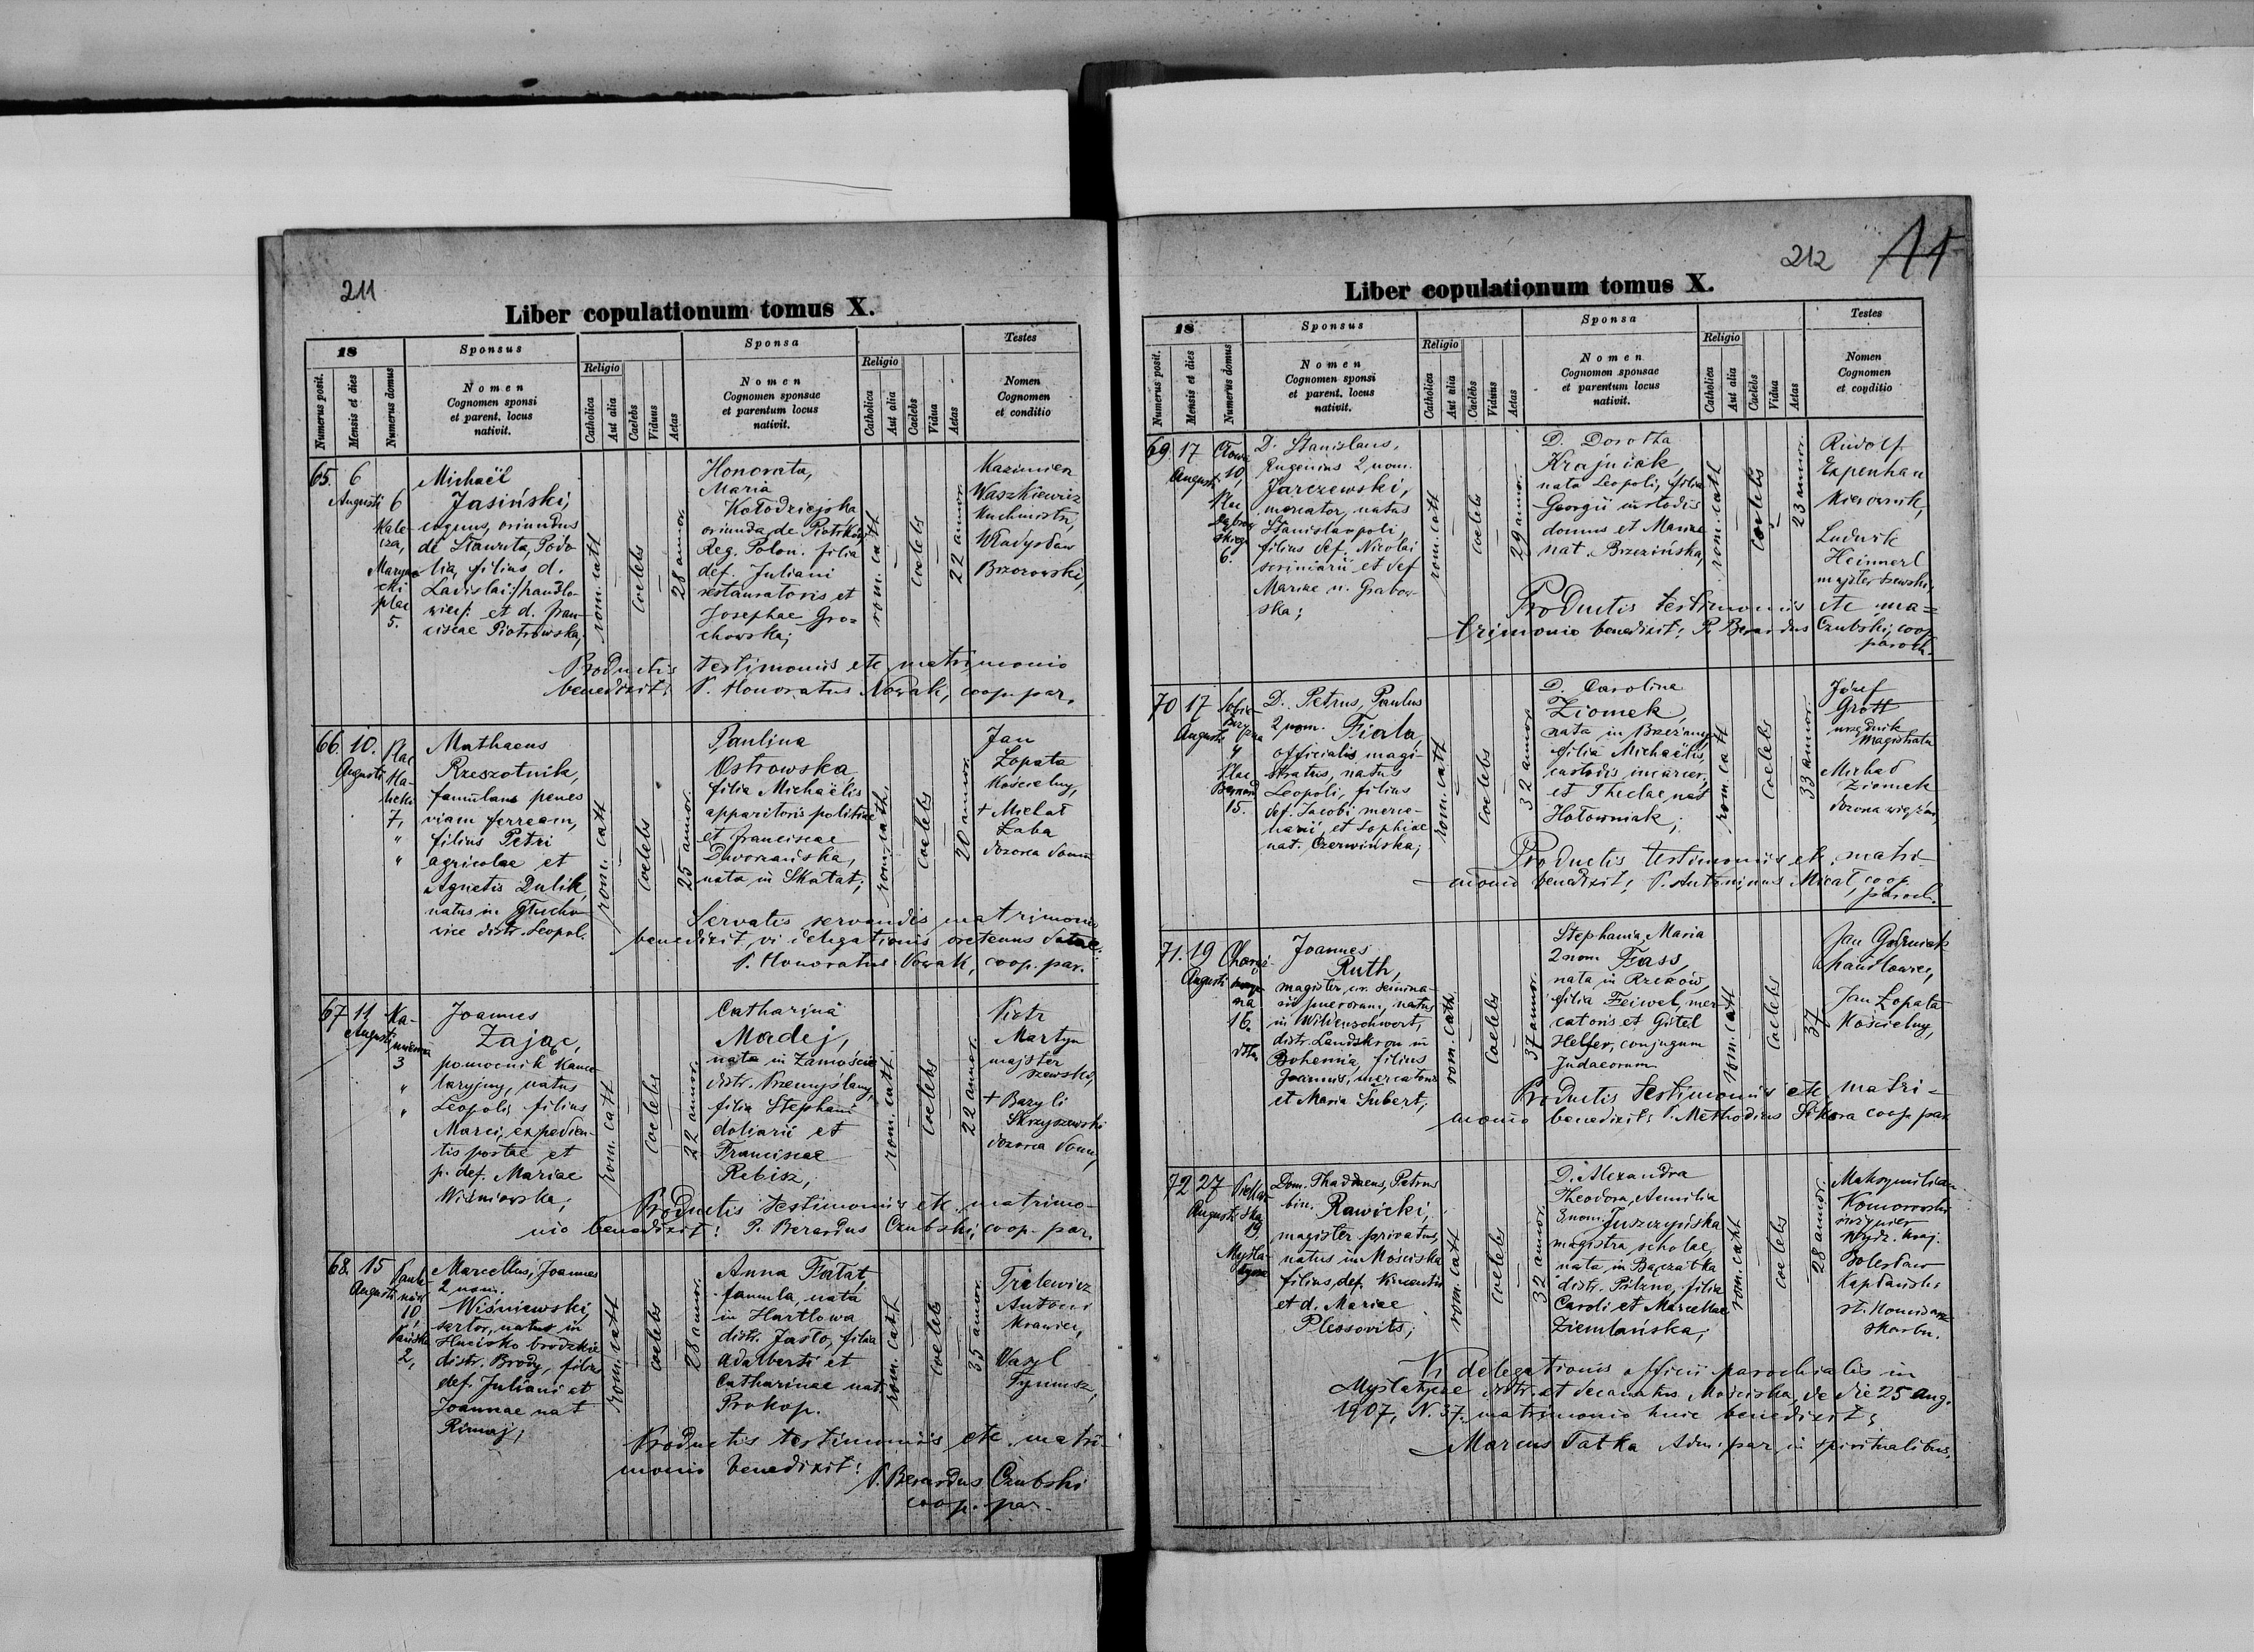 211
Liber copulationum tomus X.
18
Sponsus
Sponsa
Testes
Numerus posit.
Mensis et dies
Numerus domus
Nomen
Cognomen sponsi
et parent. locus
nativit.
Religio
Catholica
Aut alia
Caelebs
Viduus
Aetas
Nomen
Cognomen sponsae
et parentum locus
nativit.
Religio
Catholica
Aut alia
Caelebs
Vidua
Aetas
Nomen
Cognomen
et conditio
65.
6
Augusti
6
Kale-
cza,
Marya-
cki
plac
5.
Michaël
Jasiński,
coquus, oriundus
de Stawuta, Podo
lia, filius d.
Ladislai /handlo-
wiec/: et d. Fran-
ciscae Piotrowska,
rom. cath
coelebs
28 annor.
Honorata,
Maria
Kołodziejska
oriunda de Piotrków,
Reg. Polon. filia
def. Juliani
restauratoris et
Josephae Gro=
chowska;
rom. cath
coelebs
22 annor.
Kazimierz
Waszkiewicz
Kuchmistrz,
Władysław
Brzozowski,
Productis testimoniis etc matrimonio
benedixit: P. Honoratus Nowak, coop. par.
66.
10.
Augusti
Plac
Ha-
licki
7,
"
"
Mathaeus
Rzeszotnik,
famulans penes
viam ferream,
filius Petri
agricolae et
Agnetis Dulik,
natus in Głucho-
wice distr. Leopol.
rom. cath
coelebs
25 annor.
Paulina
Ostrowska,
filia Michaëlis
apparitoris politiae
et Franciscae
Dworzańska,
nata in Skałat;
rom. cath.
coelebs
20 annor.
Jan
Łopata
Kościelny,
+ Michał
Łaba
dozorca domu
Servatis servandis matrimonio
benedixit, vi delegationis oretenus datae:
P. Honoratus Nowak, coop. par.
67
11
Augusti
Ka-
mienna
3
"
"
Joannes
Zając,
pomocnik kance-
laryjny, natus
Leopoli, filius
Marci, expedien-
tis postae et
p. def. Mariae
Wiśniowska;
rom. cath
coelebs
22 annor.
Catharina
Madej,
nata in Zamoście
distr. Przemyślany,
filia Stephani
doliarii et
Franciscae
Rebisz,
rom. cath.
coelebs
22 annor.
Piotr
Martyn
majster
szewski,
+ Bazyli
Skrzyszewski
dozorca domu,
Productis testimoniis etc. matrimo-
nio benedixit: P. Berardus Czubski, coop. par.
68.
15
Augusti
10,
Pańska
2,
Marcellus, Joannes
2 nom.
Wiśniewski,
sartor, natus in
Hucisko brodzkie
distr. Brody, filius
def. Juliani et
Joannae nat
rom. cath
coelebs
28 annor.
Anna Fałat,
famula, nata
in Hartlowa
distr. Jasło, filia
Adalberti et
Catharinae nat.
Prokop.
rom. cath
coelebs
35 annor.
Antoni
krawiec,
Wasyl
Productis testimoniis etc. matri-
monio benedixit:
P. Berardus Czubski
coop. par.
212
11
Liber copulationum tomus X.
18
Sponsus
Sponsa
Testes
Numerus posit.
Mensis et dies
Numerus domus
Nomen
Cognomen sponsi
et parent. locus
nativit.
Religio
Catholica
Aut alia
Caelebs
Viduus
Aetas
Nomen
Cognomen sponsae
et parentum locus
nativit.
Religio
Catholica
Aut alia
Caelebs
Vidua
Aetas
Nomen
Cognomen
et conditio
69.
17
Augusti
10,
Plac
6.
D. Stanislaus,
Eugenius 2 nom.
Jarczewski,
mercator, natus
Stanislaopoli,
filius def. Nicolai
scriniarii et def
Mariae n. Grabow-
ska;
rom. cath
coelebs
29 annor.
D. Dorotha
Krajniak,
nata Leopoli, filia
Georgii custodis
domus et Mariae
nat. Brzezińska,
rom. cath
coelebs
23 annor.
Rudolf
kierownik,
Ludwik
Heinnerl
majster szewski,
Productis testimoniis etc ma=
trimonio benedixit: P. Berardus Czubski, coop
paroch.
70
17
Augusti
4
Plac
Bernard
15.
D. Petrus, Paulus
2 nom. Fiala,
officialis magi-
stratus, natus
Leopoli, filius
def. Jacobi merce-
narii et Sophiae
nat. Czerwińska;
rom. cath
coelebs
32 annor
D. Carolina
Ziomek,
nata in Brzeżany,
filia Michaëlis,
custodis incarcer.
et Theclae nat
Hołowniak;
rom. cath
coelebs
33 annor.
Józef
Grott
urzędnik
Magistratu
Michał
Ziomek
dozorca więzień,
Productis testimoniis etc. matri-
monio benedixit: P. Antoninus Micał, coop
paroch.
71.
19
Augusti
16.
Joannes
Ruth,
magister c.r. semina-
rio puerorum, natus
in Wildenschwert,
distr. Landskron in
Bohemia, filius
Joannis, mercatoris
et Maria Subert,
rom. cath.
coelebs
37 annor.
Stephania Maria
2 nom Fass,
nata in Rzeków,
filia Feiwel, mer-
catoris et Gittel
Helfer, conjugum
Judaeorum
rom. cath
coelebs
37
Jan
handlowiec,
Jan Łopata
Kościelny,
Productis testimoniis etc. matri-
monio benedixit: P. Methodius Sikora coop. par
72
27
Augusti
19,
Dom. Thaddaeus, Petrus
bin. Rawicki,
magister privatus,
natus in Mościska
filius def. Vincentii
et d. Mariae
Plessovits;
rom. cath
coelebs
32 annor.
D. Alexandra
Theodora, Aemilia
3 nom. Juszczyńska
magistra scholae,
nata in Bączałka
distr. Pilzno, filia
Caroli et Marcellae
Ziemlańska;
rom. cath
coelebs
28 annor.
Maksymilian
Komorowski
inżynier
Wydz. kraj.
Bolesław
st. Komisarz
skarbu.
Vi delegationis officii parochialis in
Myslatycze distr. et decanatus Mościska, de die 25 Aug.
1907, N. 37. matrimonio huic benedixit:
Marcus Tatka Adm. par. in spiritualibus.